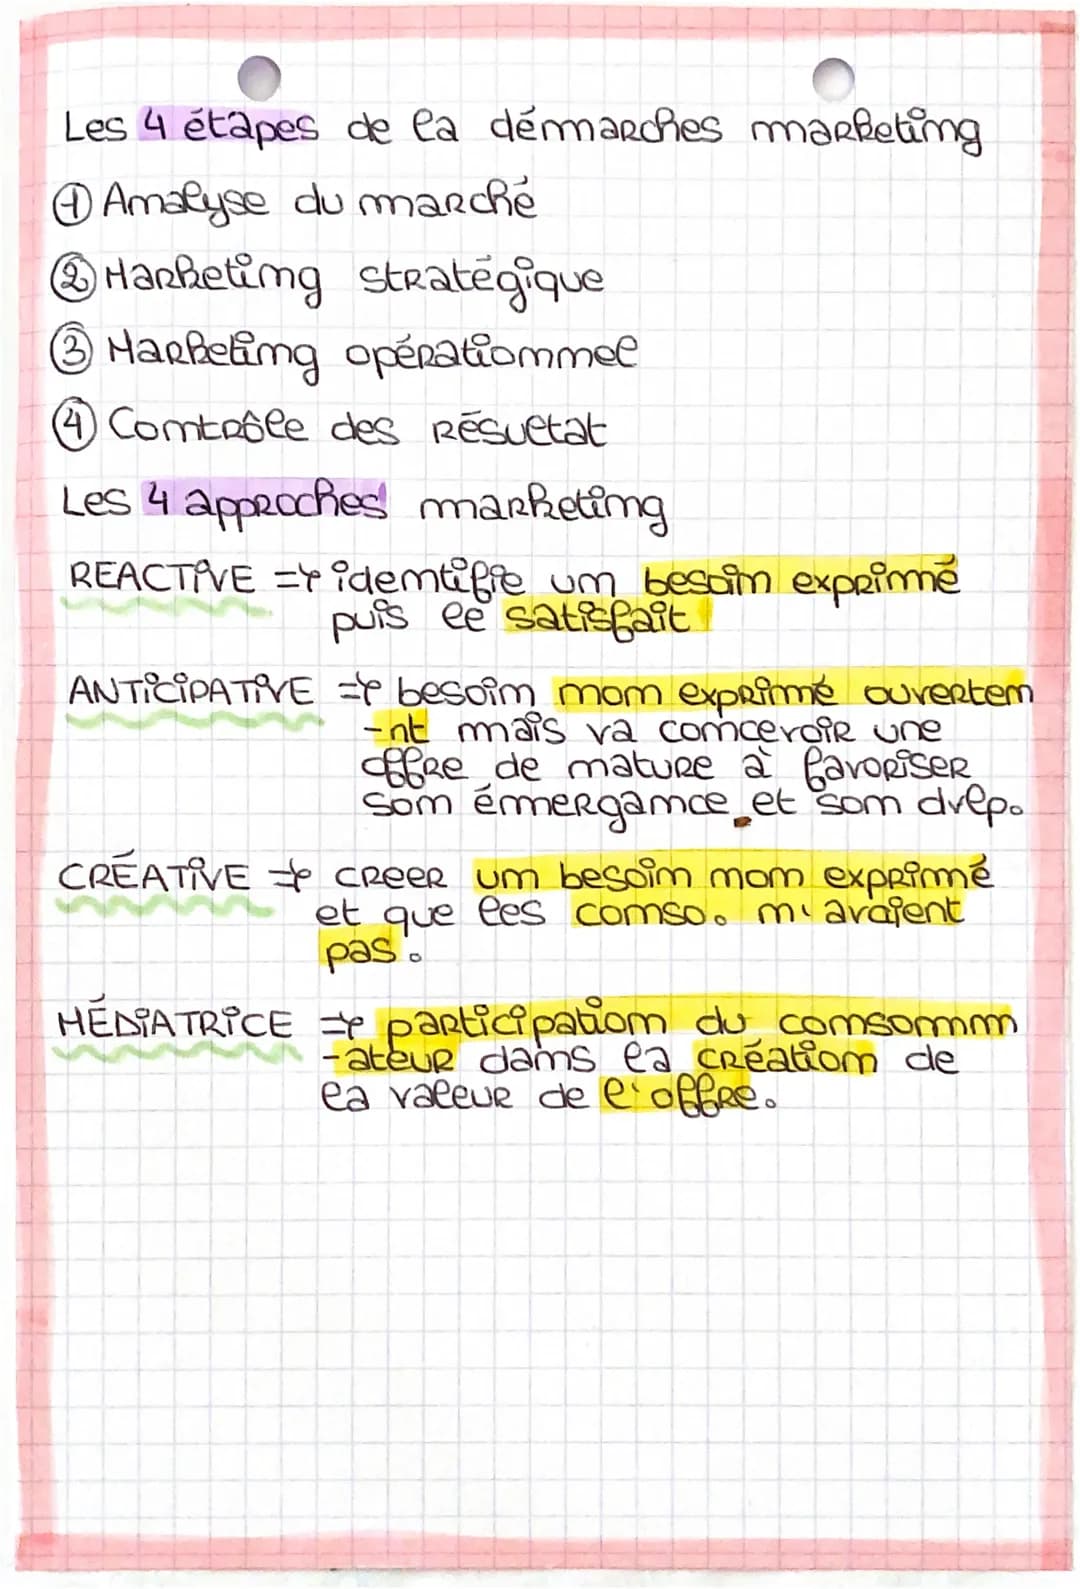 Les 4 étapes de la démarches marketing
① Analyse du marché
② Marketing stratégique
③ Marketing opérationnel
④ Contrôle des résultat
Les 4 approches marketing
REACTIVE => identifie un besoin exprimé
puis le satisfait
ANTICIPATIVE => besoin non exprimé ouvertem
-nt mais va concevoir une
offre de nature à favoriser
son émergance et son dvlp.
CRÉATIVE => creer un besoin non exprimé
et que les conso. n'avaient
pas.
MÉDIATRICE => participation du consomm
-ateur dans la création de
la valeur de l'offre.